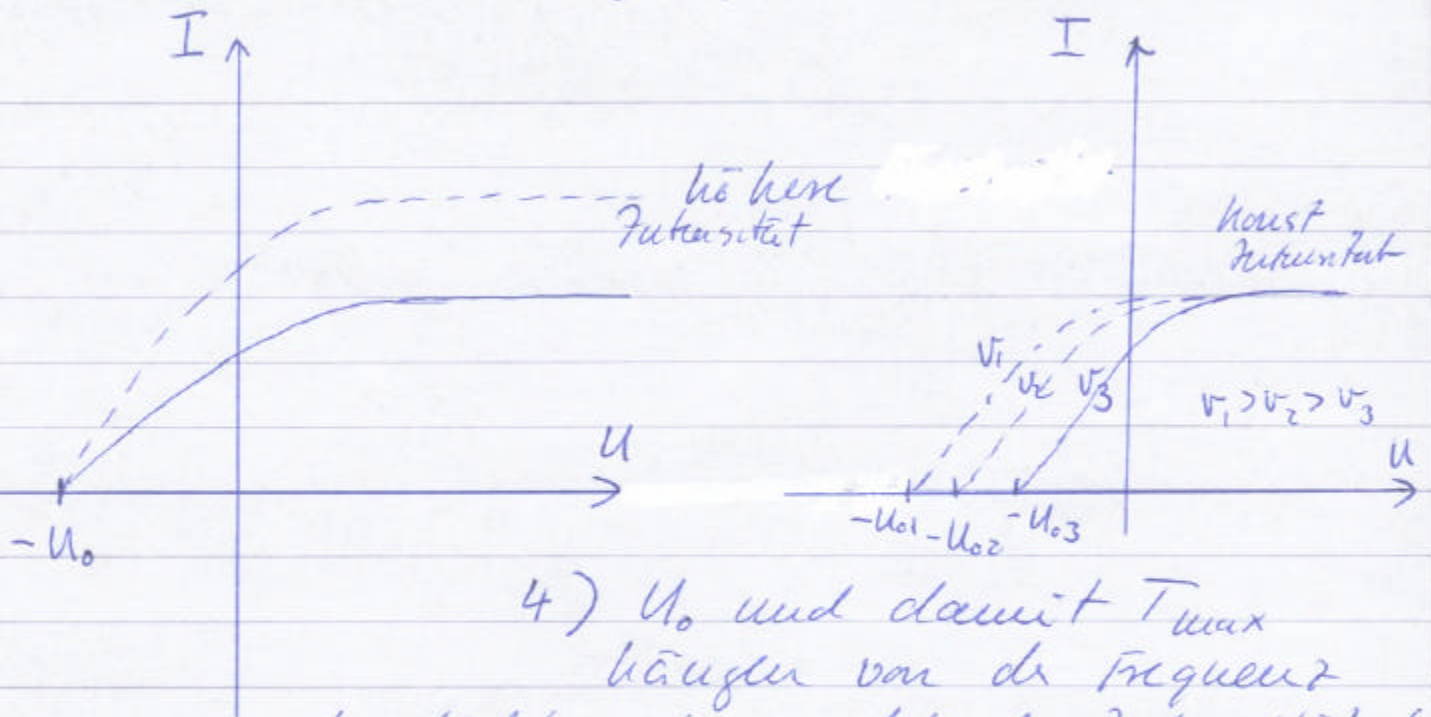 I
I
höhere
Intensität
konst
Intensität
ν₁
ν₂
ν₃
ν₁ > ν₂ > ν₃
U
U
-U₀
-U₀₁
-U₀₂
-U₀₃
4) U₀ und damit Tmax
hängen von der Frequenz